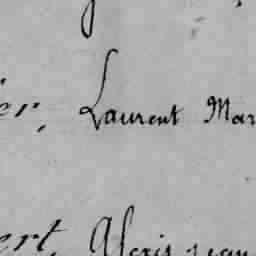 er, Laurent Mar
ert, Alexis jean